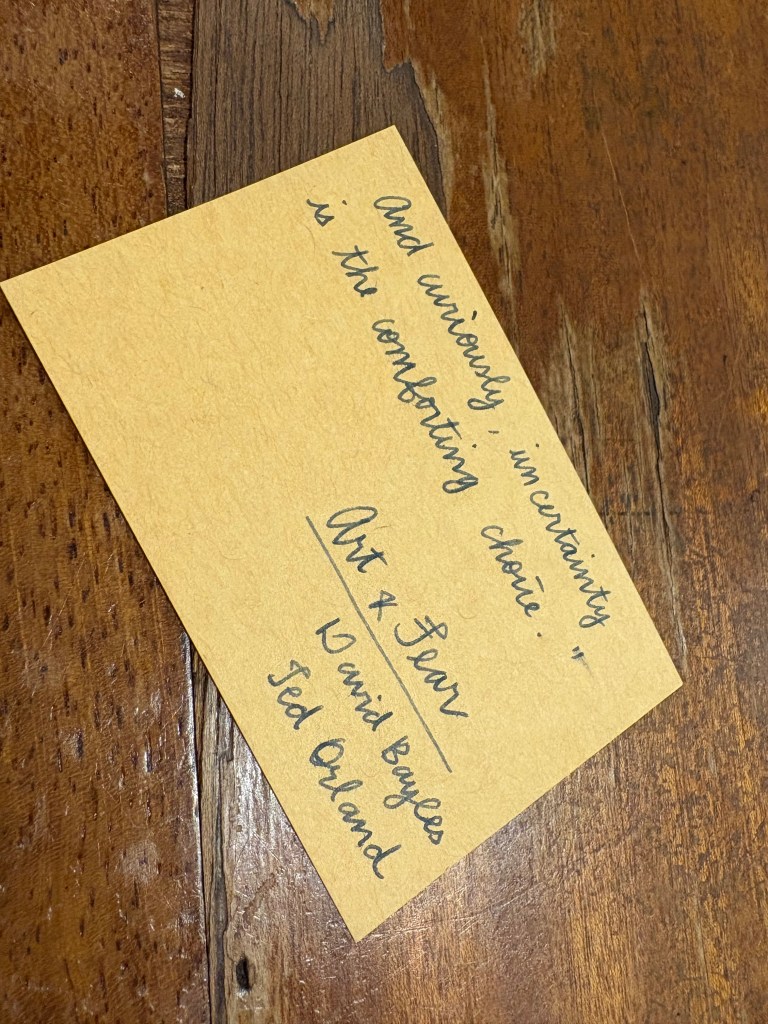 And curiously, uncertainty
is the comforting choice."
Art & Fear
David Bayles
Ted Orland